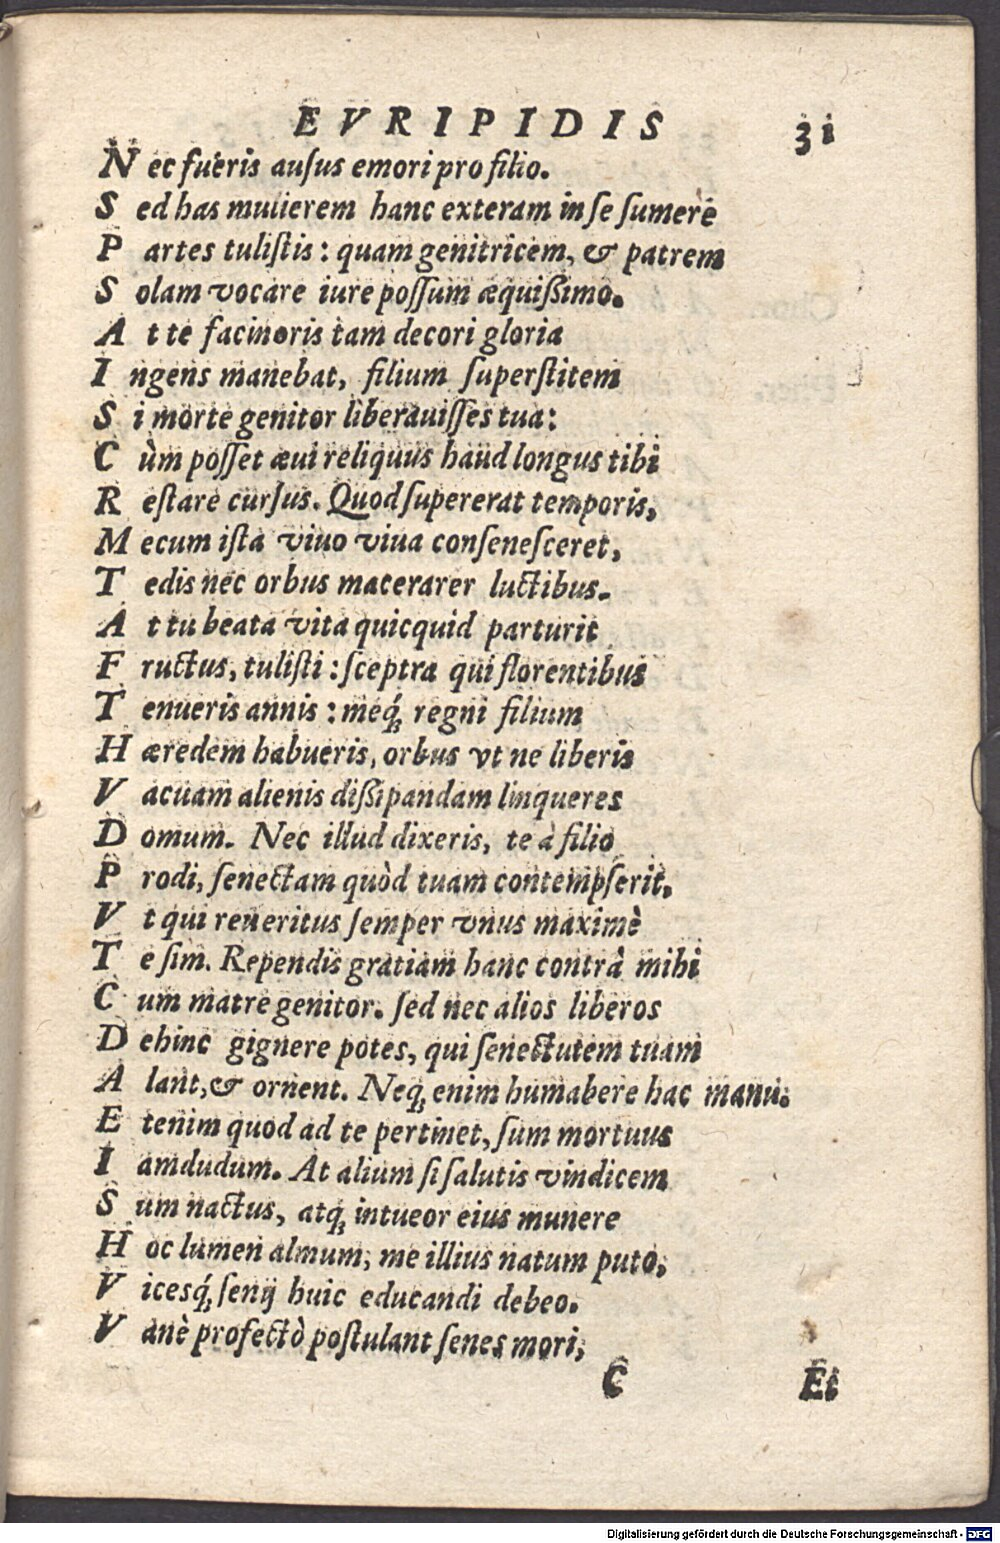 EVRIPIDIS 31
Nec fueris auſus emori pro filio.
Sed has mulierem hanc exteram in ſe ſumere
Partes tuliſtis: quam genitricem, & patrem
Solam vocare iure poſſum æquißimo.
At te facinoris tam decori gloria
Ingens manebat, filium ſuperſtitem
Si morte genitor liberauiſſes tua:
Cùm poſſet æui reliquus haud longus tibi
Reſtare curſus. Quod ſupererat temporis,
Mecum iſta viuo viua conſeneſceret,
Tedis nec orbus macerarer luctibus.
At tu beata vita quicquid parturit
Fructus, tuliſti: ſceptra qui florentibus
Tenueris annis: meq́; regni filium
Hæredem habueris, orbus vt ne liberis
Vacuam alienis dißipandam linqueres
Domum. Nec illud dixeris, te à filio
Prodi, ſenectam quòd tuam contempſerit,
Vt qui reueritus ſemper vnus maximè
Te ſim. Rependis gratiam hanc contrà mihi
Cum matre genitor. ſed nec alios liberos
Dehinc gignere potes, qui ſenectutem tuam
Alant, & ornent. Neq; enim humabere hac manu.
Etenim quod ad te pertinet, ſum mortuus
Iamdudum. At alium ſi ſalutis vindicem
Sum nactus, atq; intueor eius munere
Hoc lumen almum, me illius natum puto,
Vicesq́; ſenij huic educandi debeo.
Vanè profectò poſtulant ſenes mori,
C Et
Digitalisierung gefördert durch die Deutsche Forschungsgemeinschaft - DFG